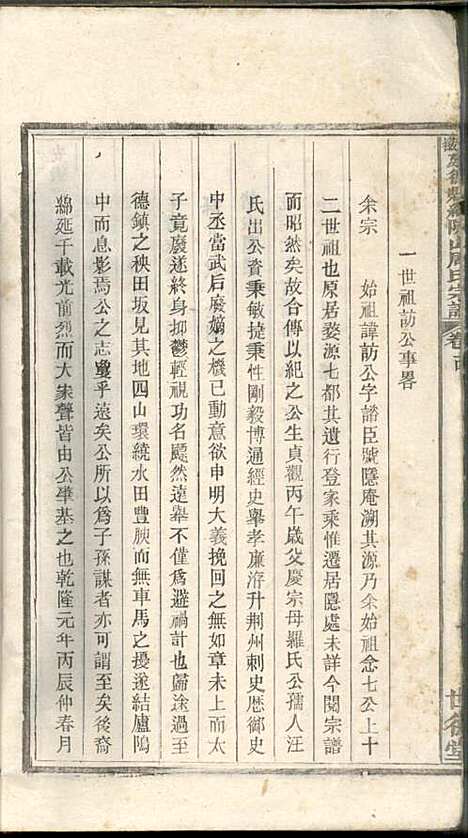 一世祖訪公事畧
余宗 始祖諱訪公字諮臣號隱庵溯其源乃余始祖念七公上十
二世祖也原居婺源七都其遺行登家乘惟遷居隱處未詳今閱宗譜
而昭然矣故合傳以紀之公生貞觀丙午歲父慶宗母羅氏公孺人汪
氏出公資秉敏捷秉性剛毅博通經史舉孝廉洊升荆州刺史歷御史
中丞當武后廢嫡之機已動意欲申明大義挽回之無如章未上而太
子竟廢遂終身抑鬱輕視功名飄然遠舉不僅爲避禍計也歸途過至
德鎮之秧田坂見其地四山環繞水田豐腴而無車馬之擾遂結廬隖
中而息影焉公之志敻乎遠矣公所以爲子孫謀者亦可謂至矣後裔
綿延千載光前烈而大家聲皆由公肇基之也乾隆元年丙辰仲春月
世德堂